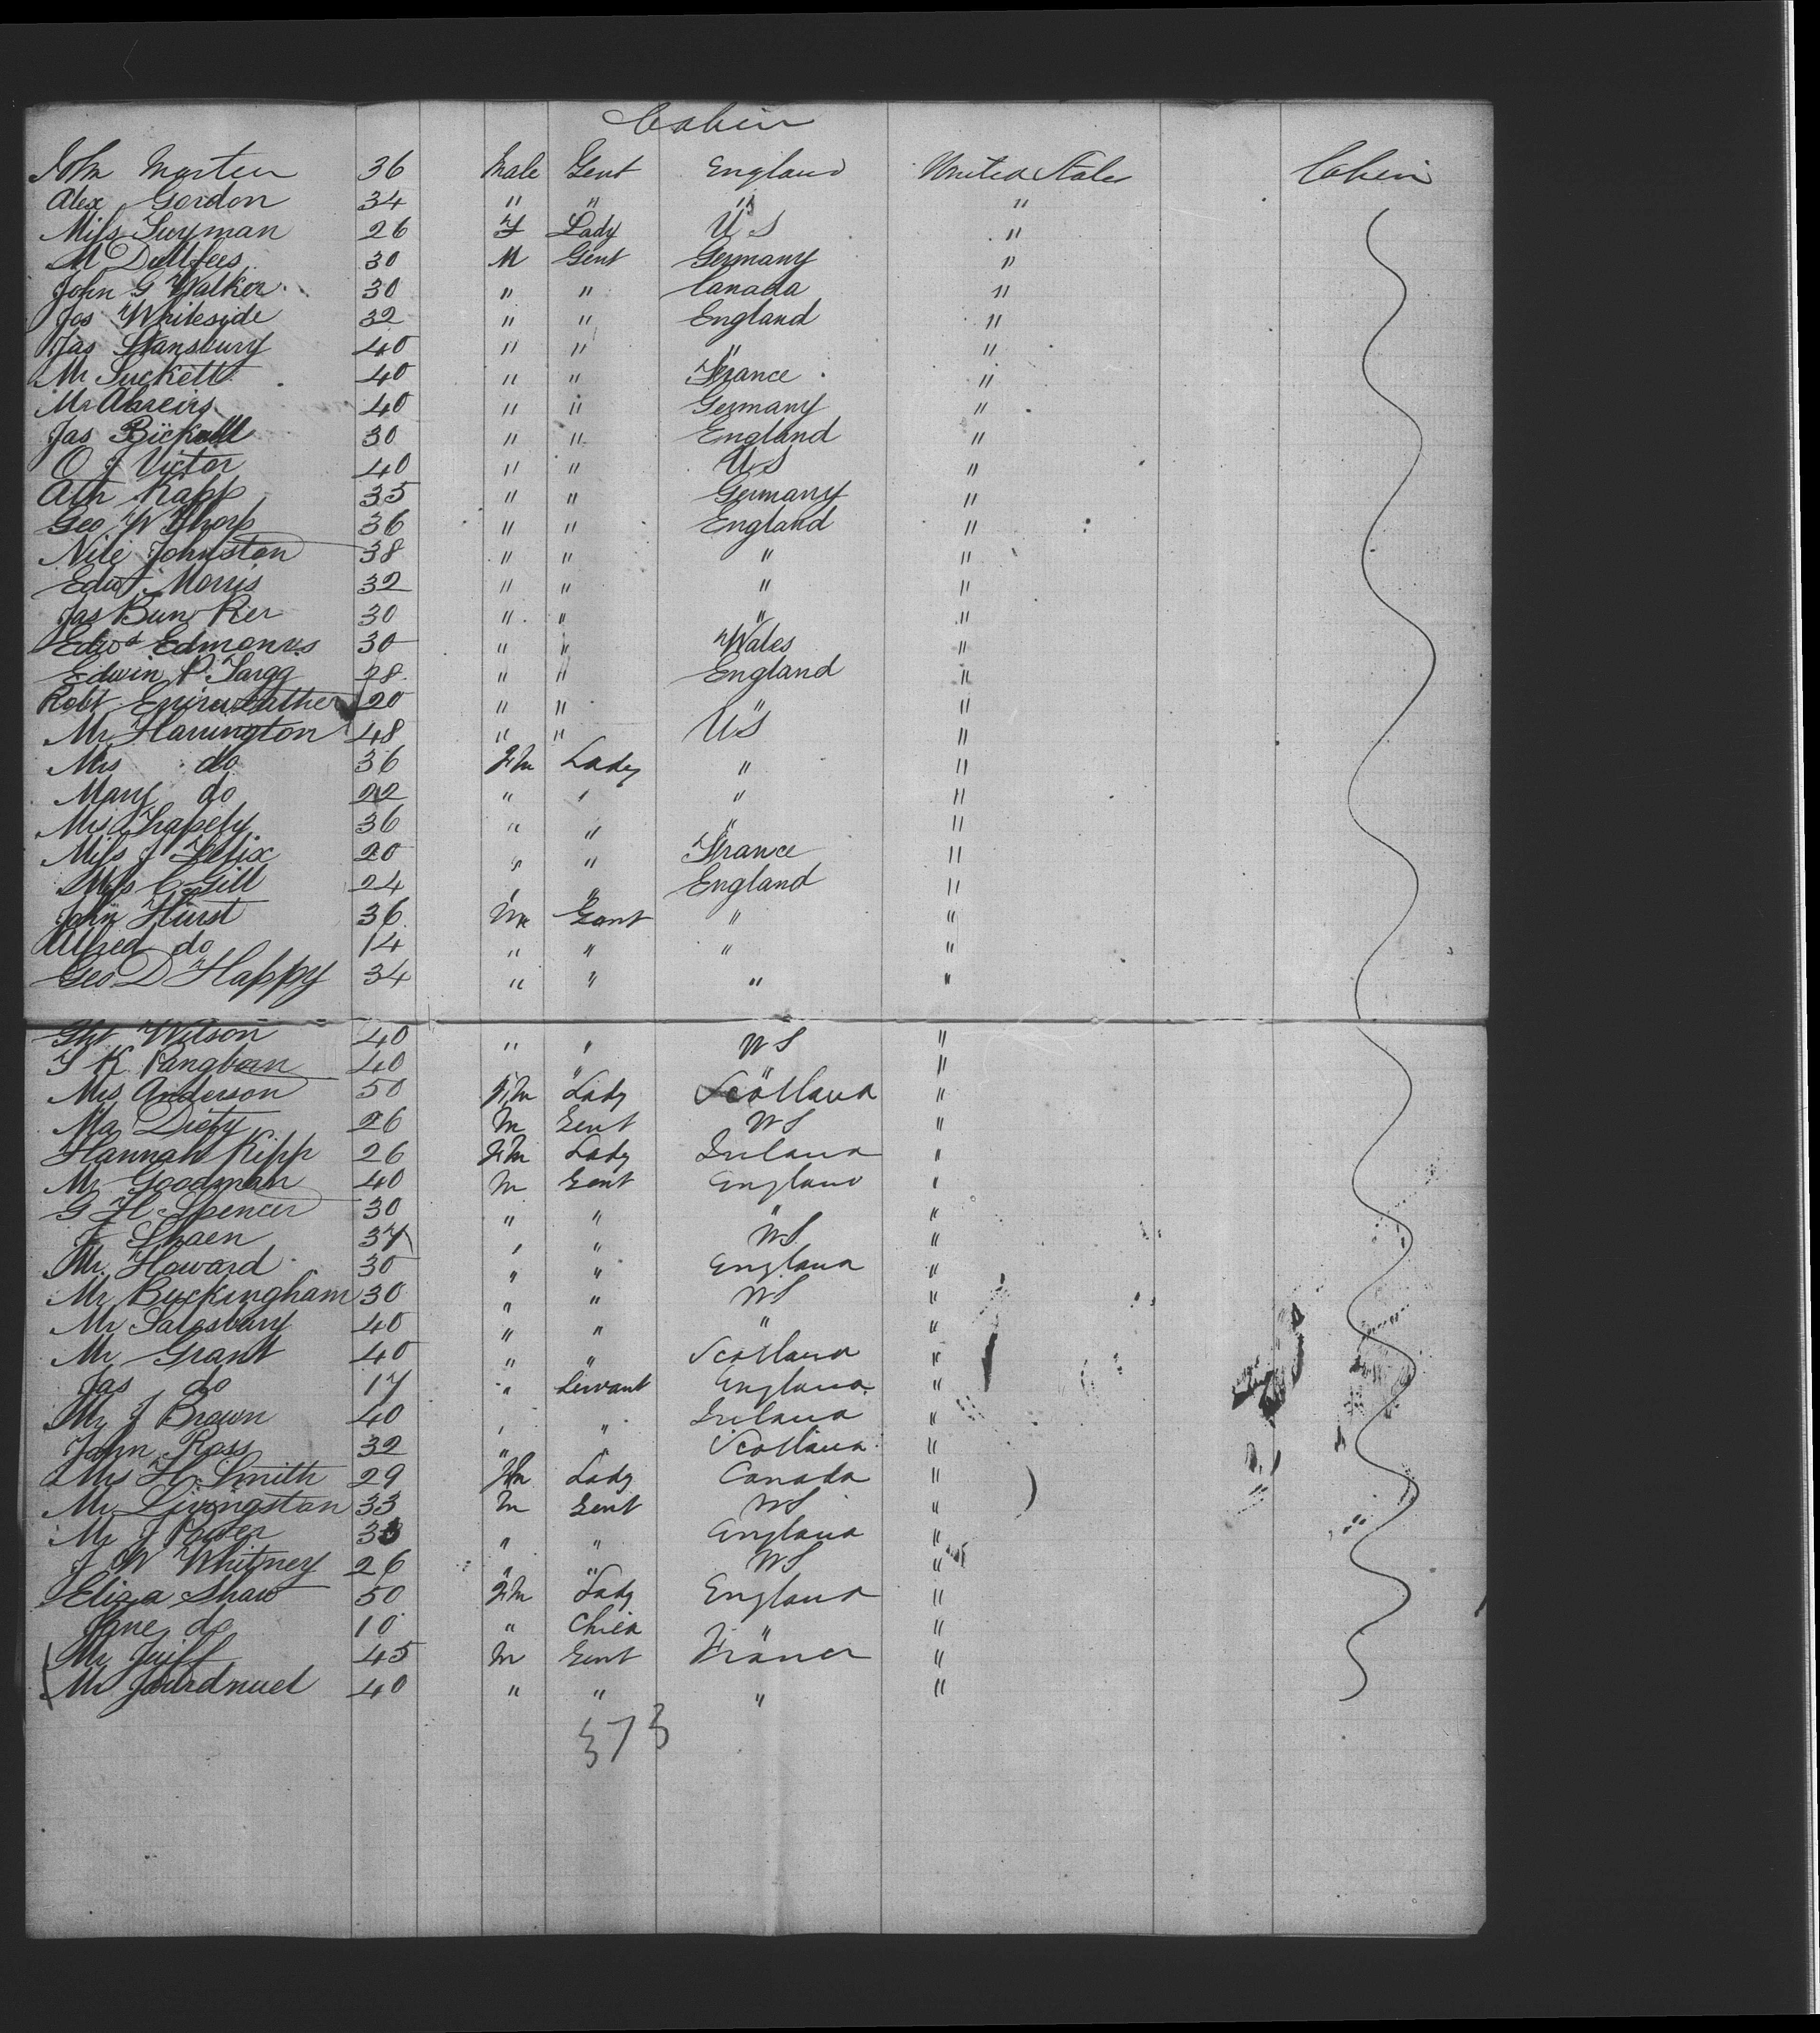 Cabin
John Martin 36 Male Gent England United States Cabin
Alex Gordon 34 " " " "
Miss Guyman 26 F Lady U S "
M 30 M Gent Germany "
John G Walker 30 " " Canada "
Jos Whiteside 32 " " England "
Jas Stansbury 40 " " " "
Mr Suckett 40 " " France "
Mr Ahreirs 40 " " Germany "
Jas Bickall 30 " " England "
O J Victor 40 " " U S "
Ath Kapp 35 " " Germany "
Geo W Thorp 36 " " England "
Nile Johnston 38 " " " "
Edwd Morris 32 " " " "
Jas Bunker 30 " " " "
Edwd Edmonds 30 " " Wales "
Edwin P. 28 " " England "
Robt 20 " " " "
Mr Harrington 48 " " U S "
Mrs do 36 Fm Lady " "
Mary do 22 " " " "
Mrs Shapely 36 " " " "
Miss J Felix 20 " " France "
Miss C Gill 24 " " England "
John Hurst 36 m Gent " "
Alfred do 14 " " " "
Geo D Happy 34 " " " "
Wilson 40 " " U S "
K Pangborn 40 " " "
Mrs Anderson 50 Fm Lady Scotland "
Diety 26 m Gent U S "
Hannah Kipp 26 Fm Lady Ireland "
Mr Goodman 40 m Gent England "
G H Spencer 30 " " " "
F Shaen 37 " " U S "
Mr. Howard 30 " " England "
Mr Buckingham 30 " " U S "
Mr Salesbury 40 " " " "
Mr Grant 40 " " Scotland "
Jas do 17 " Servant England "
Mr J Brown 40 " " Ireland "
John Ross 32 " " Scotland "
Mrs H Smith 29 Fm Lady Canada "
Mr Livingston 33 m Gent U S "
Mr J 33 " " England "
J W Whitney 26 " " U S "
Eliza Shaw 50 Fm Lady England "
Jane do 10 " Child " "
Mr Juiff 45 m Gent France "
Mr 40 " " " "
373